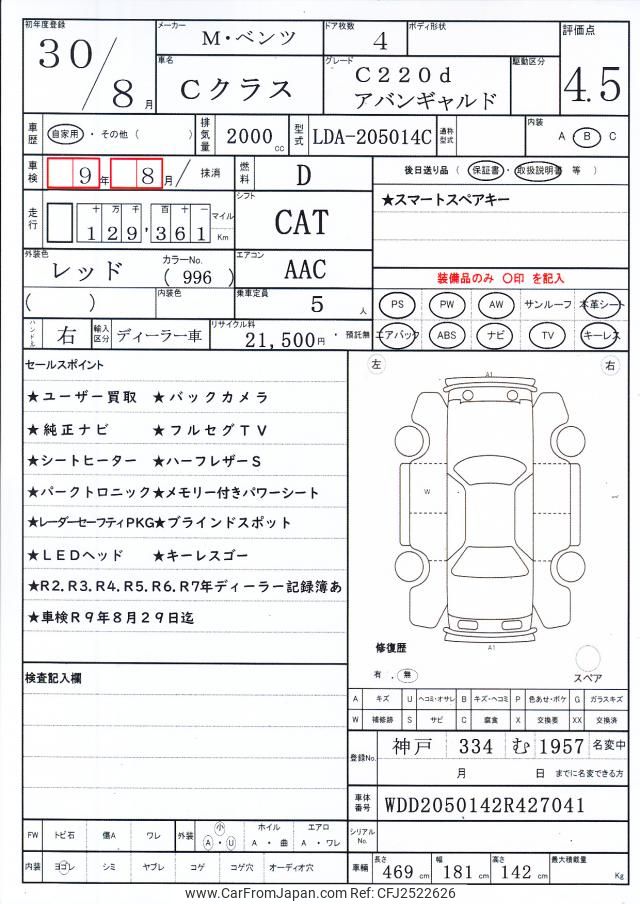 初年度登録 メーカー ドア枚数 ボディ形状 評価点
30/8月 M・ベンツ 4 4.5
車名 グレード 駆動区分
Cクラス C220d アバンギャルド
車歴 自家用・その他( ) 排気量 2000cc 型式 LDA-205014C 通称型式 内装 A B C
車検 9年 8月/ 抹消 燃料 D 後日送り品 ( 保証書・取扱説明書 等 )
走行 十 万 千 百 十 一 マイル Km シフト ★スマートスペアキー
129,361 CAT
外装色 カラーNo. エアコン
レッド ( 996 ) AAC 装備品のみ 〇印 を記入
( ) 内装色 乗車定員 5人 PS PW AW サンルーフ 本革シート
ハンドル 右 輸入区分 ディーラー車 リサイクル料 21,500円・預託無 エアバック ABS ナビ TV キーレス
セールスポイント 左 右
★ユーザー買取 ★バックカメラ
★純正ナビ ★フルセグTV
★シートヒーター ★ハーフレザーS
★パークトロニック★メモリー付きパワーシート
★レーダーセーフティPKG★ブラインドスポット
★LEDヘッド ★キーレスゴー
★R2.R3.R4.R5.R6.R7年ディーラー記録簿あ
★車検R9年8月29日迄
A1
W
A1
修復歴
有 . 無 スペア
検査記入欄
A キズ U ヘコミ・オサレ B キズ・ヘコミ P 色あせ・ボケ G ガラスキズ
W 補修跡 S サビ C 腐食 X 交換要 XX 交換済
登録No. 神戸 334 む 1957 名変中
月 日 までに名変できる方
車体番号 WDD2050142R427041
FW トビ石 傷A ワレ 外装 小 A・U ホイル A・曲 エアロ A・ワレ シリアルNo.
内装 ヨゴレ シミ ヤブレ コゲ コゲ穴 オーディオ穴 車輛 長さ 469cm 幅 181cm 高さ 142cm 最大積載量 Kg
www.CarFromJapan.com Ref: CFJ2522626